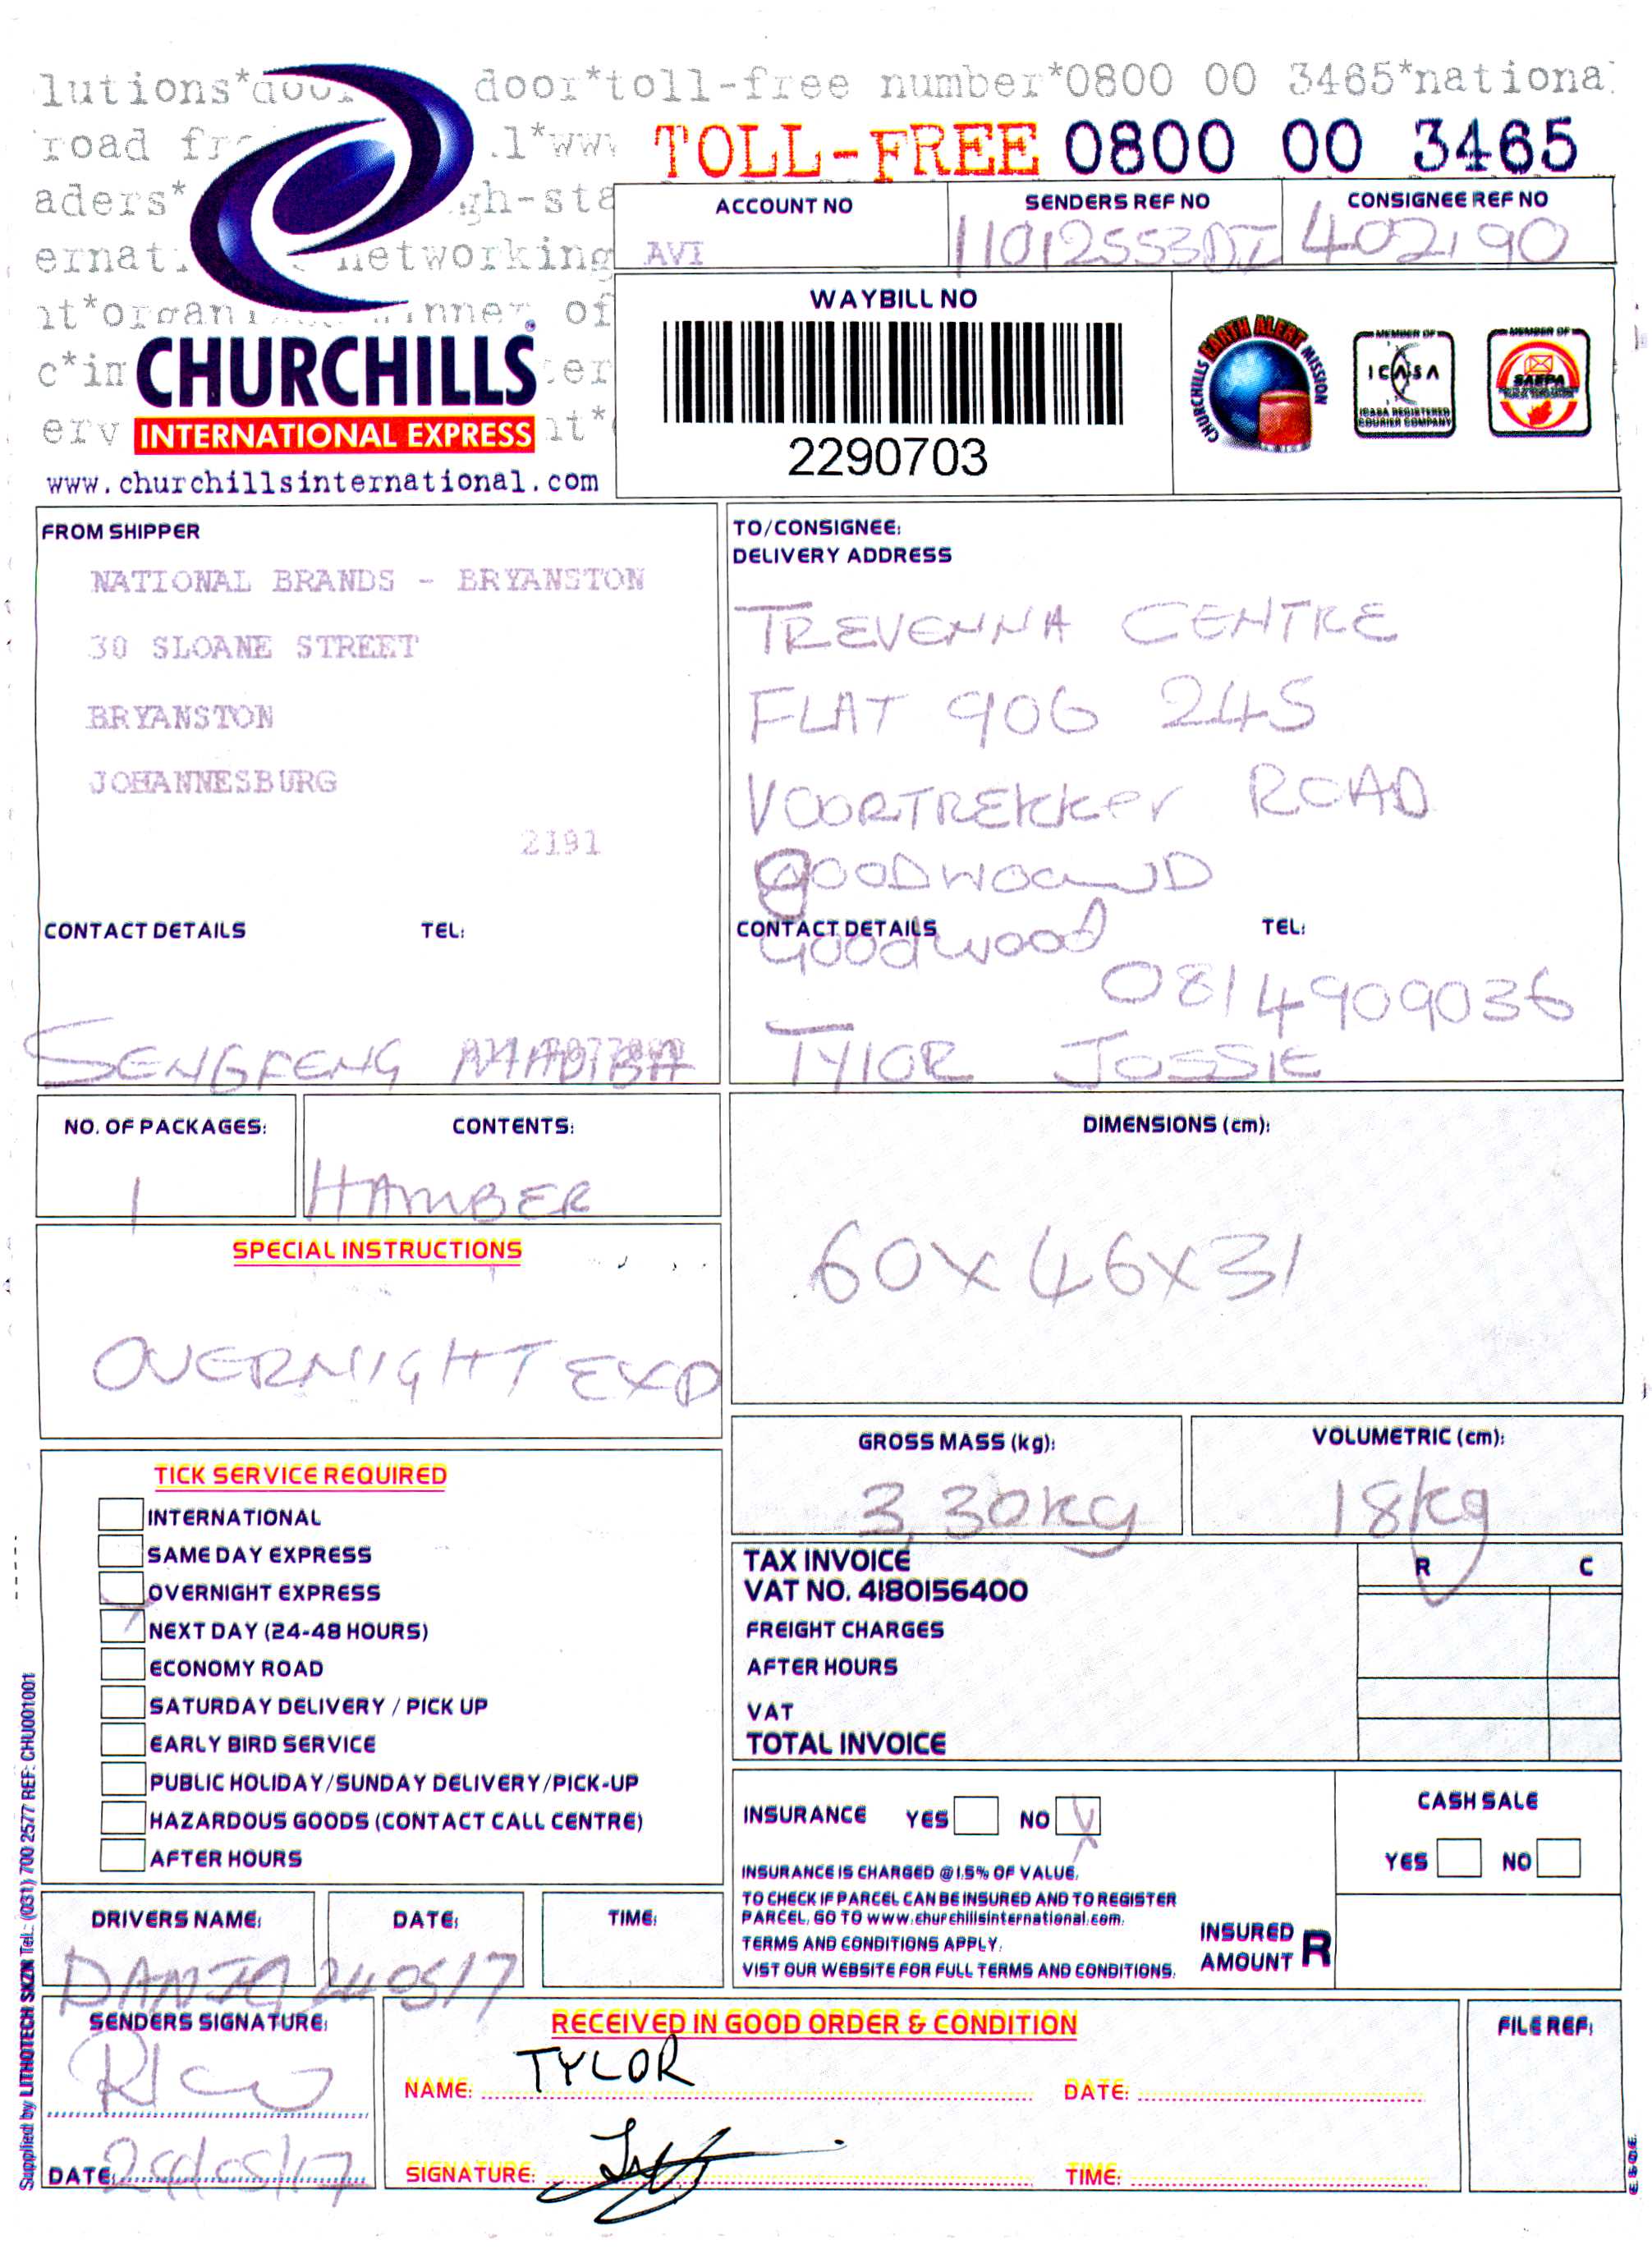 lutions*door door*toll-free number*0800 00 3465*national
road fr .l*www TOLL-FREE 0800 00 3465
aders* gh-sta
ernati networking
nt*organi inner of
c*in ter
erv nt*
CHURCHILLS
INTERNATIONAL EXPRESS
www.churchillsinternational.com
ACCOUNT NO SENDERS REF NO CONSIGNEE REF NO
AVI 11012553DI 402190
WAYBILL NO
2290703
CHURCHILLS EARTH ALERT MISSION
MEMBER OF
ICASA
ICASA REGISTERED
COURIER COMPANY
MEMBER OF
SAEPA
FROM SHIPPER
NATIONAL BRANDS - BRYANSTON
30 SLOANE STREET
BRYANSTON
JOHANNESBURG
2191
CONTACT DETAILS TEL:
SENGFENG
TO/CONSIGNEE:
DELIVERY ADDRESS
TREVENNA CENTRE
FLAT 906 245
VOORTREKKer ROAD
GOODWOOD
CONTACT DETAILS TEL:
Goodwood
0814909036
TYLOR JOSSIE
NO. OF PACKAGES: CONTENTS:
1 HAMBER
DIMENSIONS (cm):
60x46x31
SPECIAL INSTRUCTIONS
OVERNIGHT EXP
GROSS MASS (kg): VOLUMETRIC (cm):
3,30kg 18kg
TICK SERVICE REQUIRED
INTERNATIONAL
SAME DAY EXPRESS
OVERNIGHT EXPRESS
NEXT DAY (24-48 HOURS)
ECONOMY ROAD
SATURDAY DELIVERY / PICK UP
EARLY BIRD SERVICE
PUBLIC HOLIDAY/SUNDAY DELIVERY/PICK-UP
HAZARDOUS GOODS (CONTACT CALL CENTRE)
AFTER HOURS
TAX INVOICE R C
VAT NO. 4180156400
FREIGHT CHARGES
AFTER HOURS
VAT
TOTAL INVOICE
INSURANCE YES NO X
INSURANCE IS CHARGED @ 1.5% OF VALUE.
TO CHECK IF PARCEL CAN BE INSURED AND TO REGISTER
PARCEL, GO TO www.churchillsinternational.com.
TERMS AND CONDITIONS APPLY.
VIST OUR WEBSITE FOR FULL TERMS AND CONDITIONS.
INSURED
AMOUNT R
CASH SALE
YES NO
DRIVERS NAME: DATE: TIME:
24 05/17
SENDERS SIGNATURE:
RICO
DATE: 24/05/17
RECEIVED IN GOOD ORDER & CONDITION
NAME: TYLOR DATE:
SIGNATURE: TIME:
FILE REF:
Supplied by LITHOTECH SKZN Tel.: (031) 700 2577 REF: CHU001001
E & OE.